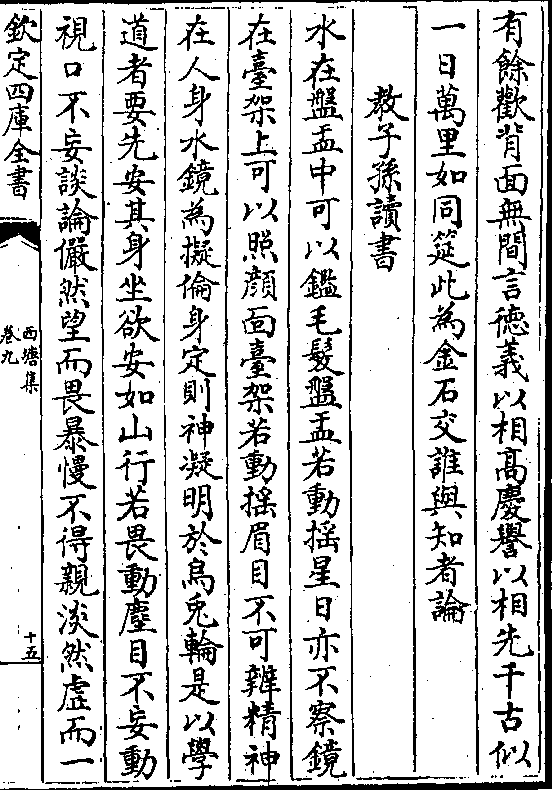 有餘歡背面無間言德義以相髙慶譽以相先千古似
一日萬里如同筵此為金石交誰與知者論
教子孫讀書
水在盤盂中可以鑑毛髮盤盂若動揺星日亦不察鏡
在臺架上可以照顔面臺架若動揺眉目不可辨精神
在人身水鏡為擬倫身定則神凝明於烏兎輪是以學
道者要先安其身坐欲安如山行若畏動塵目不妄動
視口不妄談論儼然望而畏暴慢不得親淡然虚而一
欽定四庫全書
西塘集
卷九
十五